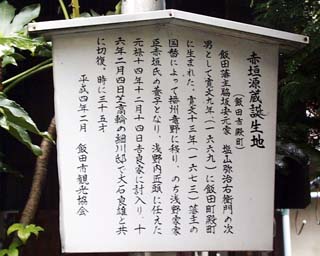 赤垣源蔵誕生地
（飯田市殿町）
飯田藩主脇坂安元家　塩山弥治右衛門の次
男として寛文九年（一六六九）に飯田町殿町
に生まれた、寛文十三年（一六七三）藩主の
国替によって播州竜野に移り、のち浅野家家
臣赤垣氏の養子となり、浅野内匠頭に仕えた
元禄十四年十二月十四日吉良家に討入り、十
六年二月四日芝高輪の細川邸で大石良雄と共
に切復、時に三十五才
平成四年二月　飯田市観光協会